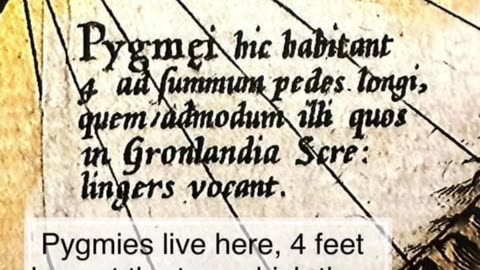 Pygmęi hic habitant
4 ad ſummum pedes longi,
quem admodum illi quos
in Gronlandia Scre:
lingers vocant.
Pygmies live here, 4 feet